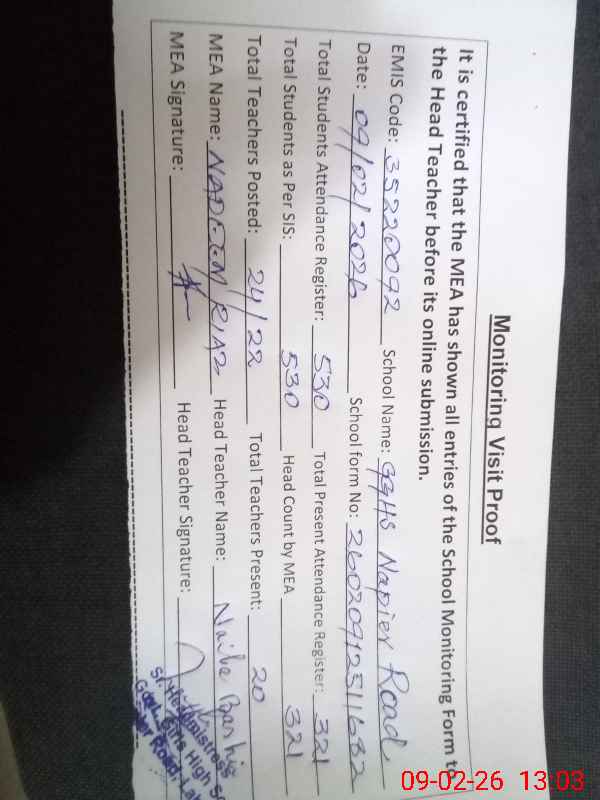 Monitoring Visit Proof
It is certified that the MEA has shown all entries of the School Monitoring Form to
the Head Teacher before its online submission.
EMIS Code: 35220092 School Name: GGHS Napier Road
Date: 09/02/2026 School form No: 26020912511632
Total Students Attendance Register: 530 Total Present Attendance Register: 321
Total Students as Per SIS: 530 Head Count by MEA 321
Total Teachers Posted: 24/22 Total Teachers Present: 20
MEA Name: NADEEM RIAZ Head Teacher Name: Naila Bashir
MEA Signature: Head Teacher Signature:
Sr. Headmistress
Govt. Girls High
Road,
09-02-26 13:03